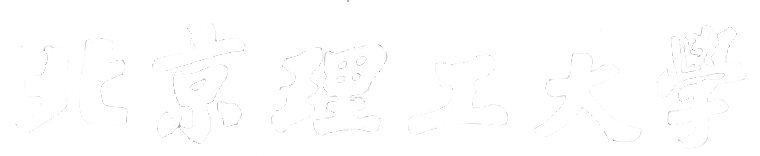 北京理工大學